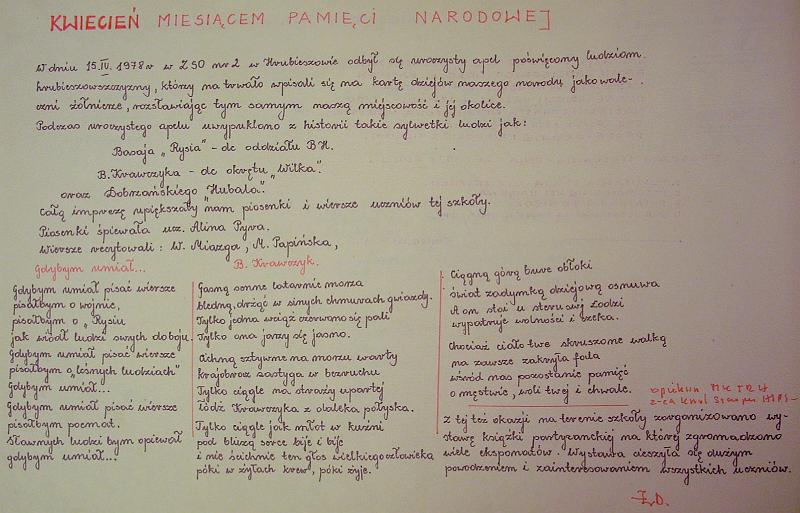 KWIECIEŃ MIESIĄCEM PAMIĘCI NARODOWEJ
W dniu 15.IV.1978 r w ZSO nr 2 w Hrubieszowie odbył się uroczysty apel poświęcony ludziom
hrubieszowszczyzny, którzy na trwało wpisali się na kartę dziejów naszego narodu, jako wale-
czni żołnierze, rozsławiając tym samym naszą miejscowość i jej okolice.
Podczas uroczystego apelu uwypuklono z historii takie sylwetki ludzi jak:
Basaja „Rysia" - dc oddziału BH.
B. Krawczyka - dc okrętu „Wilka".
oraz Dobrzańskiego „Hubala".
Całą imprezę upiększały nam piosenki i wiersze uczniów tej szkoły.
Piosenki śpiewała ucz. Alina Pyra.
Wiersze recytowali: W. Miazga, M. Papińska,
Gdybym umiał...
Gdybym umiał pisać wiersze
pisałbym o wojnie,
pisałbym o „Rysiu
jak wiódł ludzi swych do boju.
Gdybym umiał pisać wiersze
pisałbym o „leśnych ludziach"
Gdybym umiał...
Gdybym umiał pisać wiersze
pisałbym poemat.
Sławnych ludzi bym opiewał
gdybym umiał...
B. Krawczyk.
Gasną senne latarnie morza
bledną, drżąc w sinych chmurach gwiazdy.
Tylko jedna wciąż czerwono się pali
Tylko ona jarzy się jasno.
Cichną sztywne na morzu warty
krajobraz zastyga w bezruchu
Tylko ciągle na straży upartej
łódź Krawczyka z daleka połyska.
Tylko ciągle jak młot w kuźni
pod bluzą serce bije i bije
i nie ścichnie ten głos wielkiego człowieka
póki w żyłach krew, póki żyje.
Ciągną górą bure obłoki
świat zadymką dziejową osnuwa
A on stoi u steru swej Łodzi
wypatruje wolności i czeka.
Chociaż ciało twe skruszone walką
na zawsze zakryła fala
wśród nas pozostanie pamięć
o męstwie, woli twej i chwale.
opiekun
Z tej też okazji na terenie szkoły zorganizowano wy-
stawę książki partyzanckiej na której zgromadzono
wiele eksponatów. Wystawa cieszyła się dużym
powodzeniem i zainteresowaniem wszystkich uczniów.